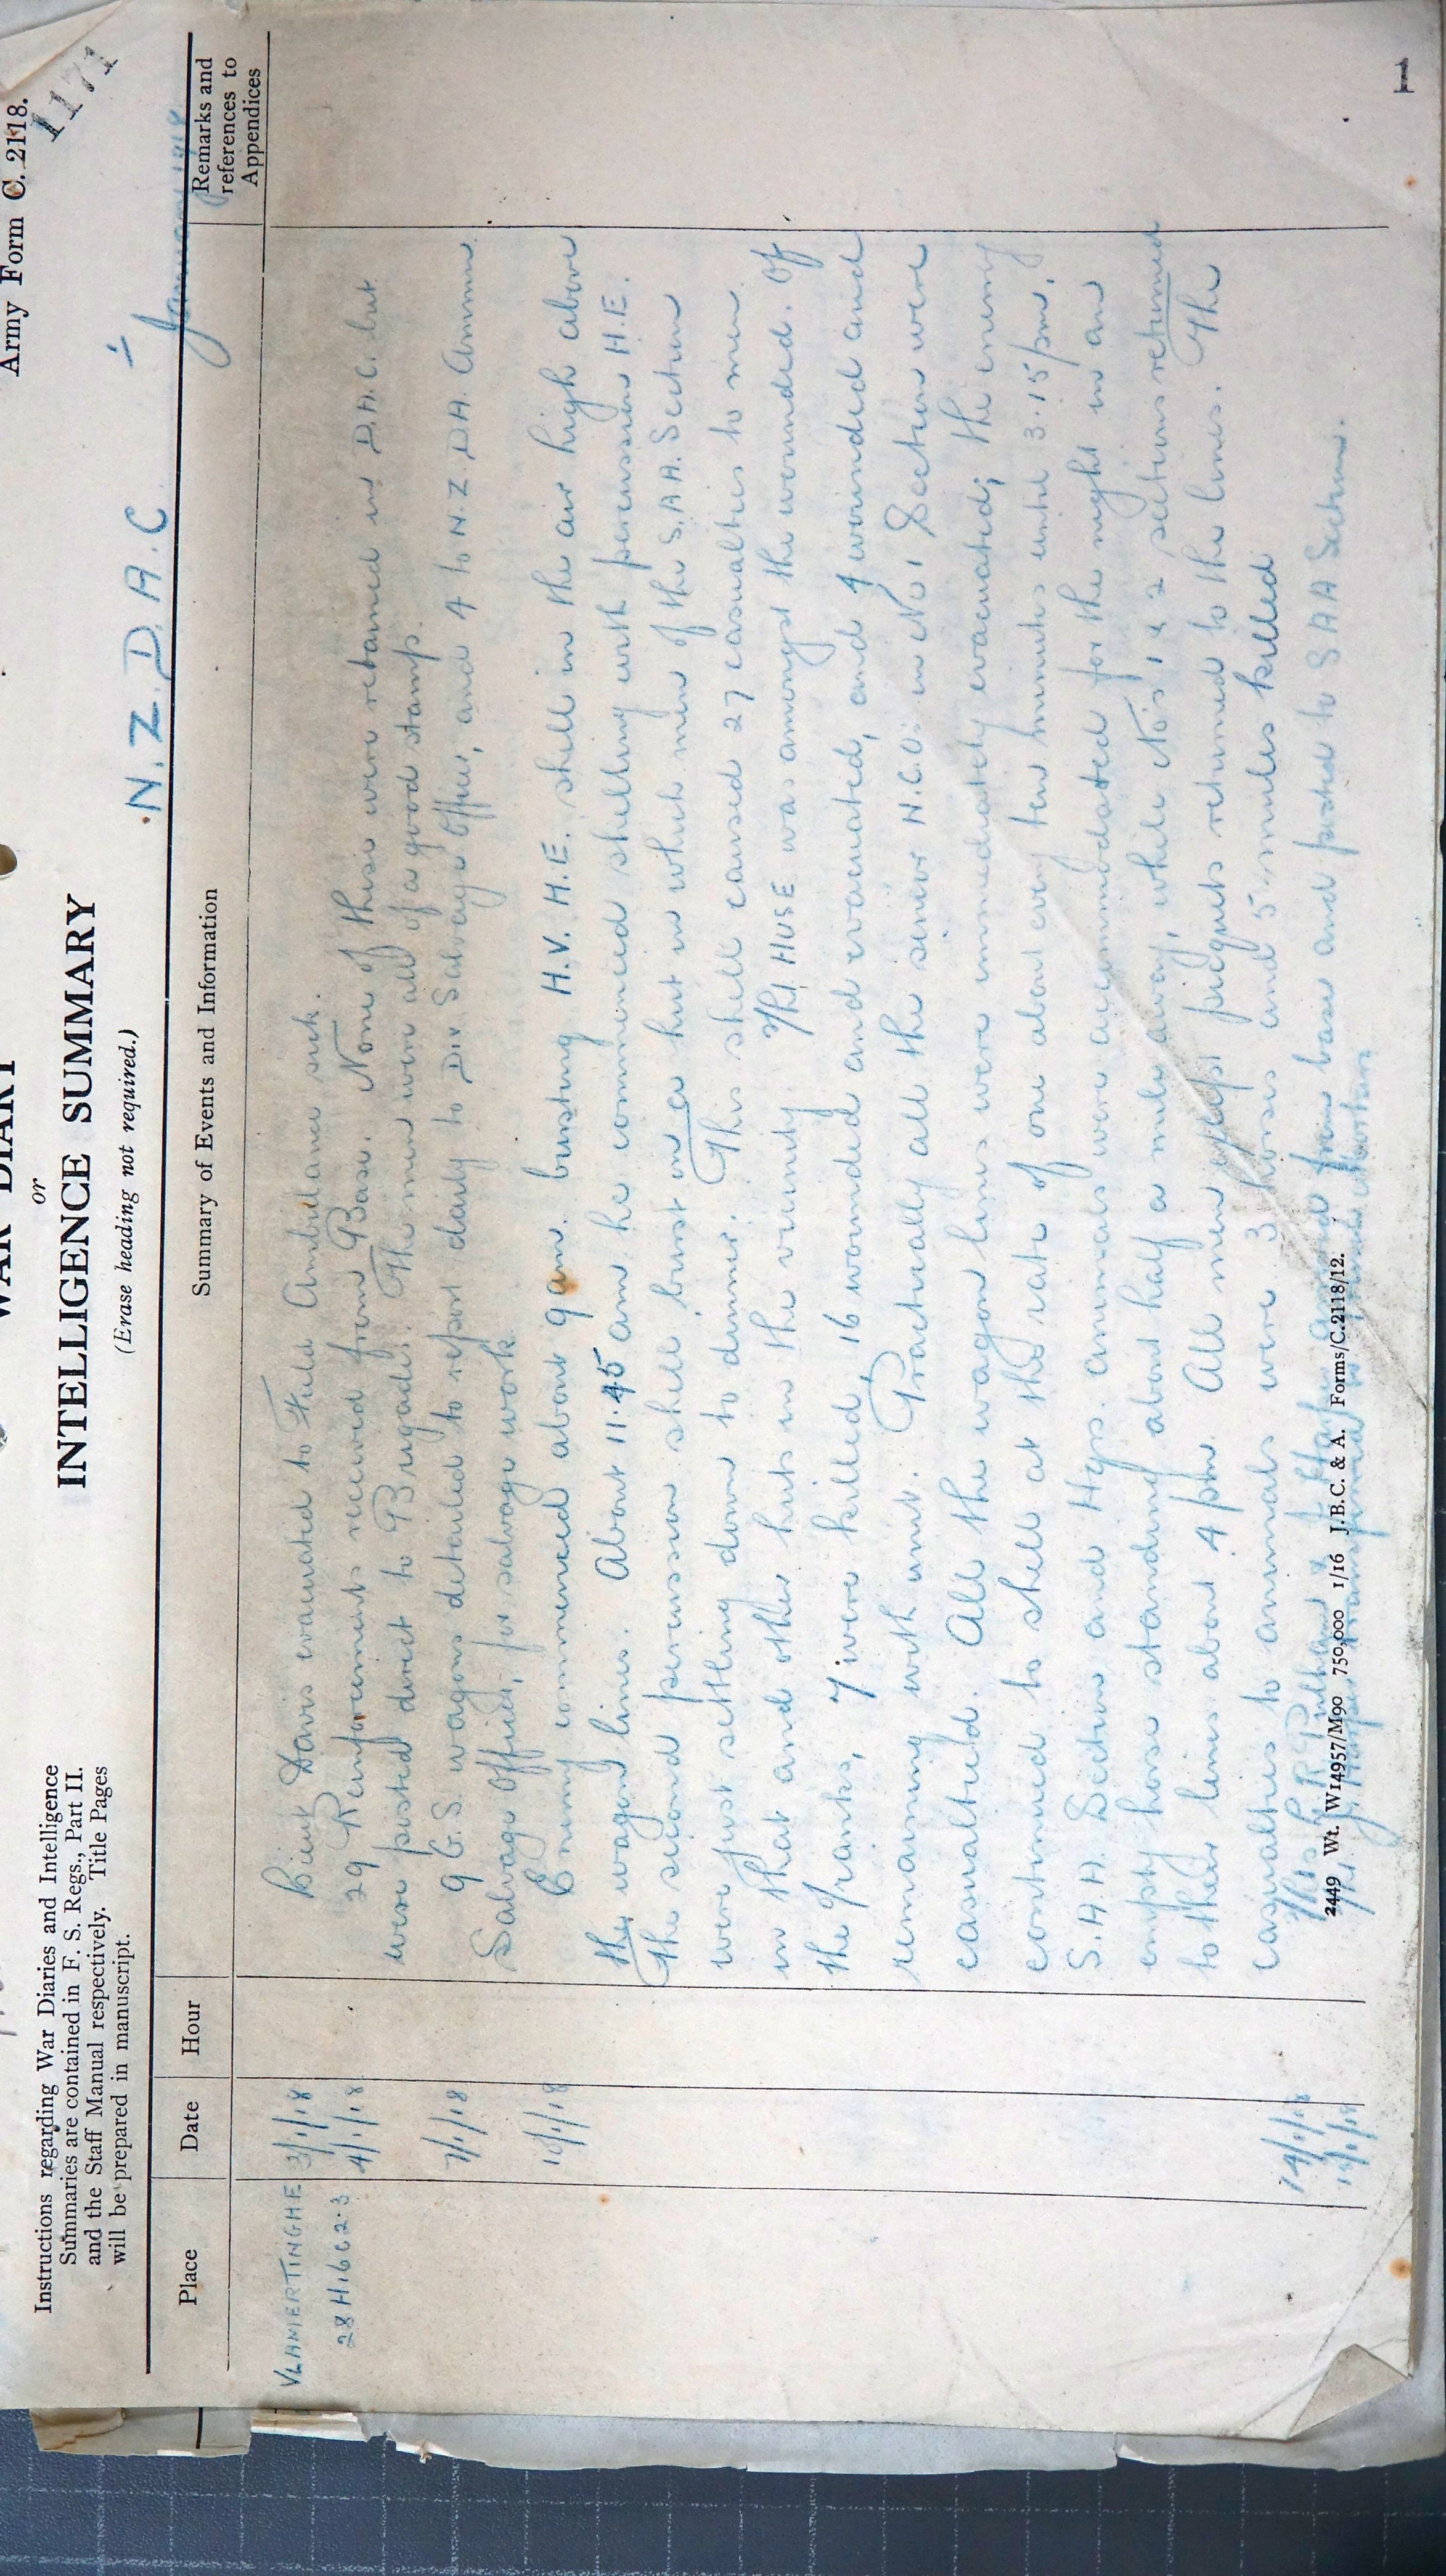 Army Form C. 2118.
1171
WAR DIARY
or
INTELLIGENCE SUMMARY
(Erase heading not required.)
Instructions regarding War Diaries and Intelligence
Summaries are contained in F. S. Regs., Part II.
and the Staff Manual respectively. Title Pages
will be prepared in manuscript.
N.Z.D.A.C - January 1918
Place Date Hour Summary of Events and Information Remarks and
references to
Appendices
VLAMERTINGHE 3/1/18 Lieut Davis evacuated to Field Ambulance sick.
28 H16c2.3 4/1/18 29 Reinforcements received from Base. None of these were retained in D.A.C. but
were posted direct to Brigades. The men were all of a good stamp.
7/1/18 9 G.S wagons detailed to report daily to Div Salvage Officer, and 4 to N.Z.D.A. Ammn
Salvage Officer, for salvage work
10/1/18 Enemy commenced about 9 am. bursting H.V. H.E. shell in the air high above
the wagon lines. About 11.45 am he commenced shelling with percussion H.E.
The second percussion shell burst on a hut in which men of the S.A.A. Section
were just settling down to dinner. This shell caused 27 casualties to men
in that and other huts in the vicinity HUSE was amongst the wounded. Of
the ranks, 7 were killed, 16 wounded and evacuated, and 4 wounded and
remaining with unit. Practically all the senior N.C.Os in No 1 Section were
casualtied. All the wagon lines were immediately evacuated; the enemy
continued to shell at the rate of one about every ten minutes until 3.15 pm.
S.A.A. Section and Hqs. animals were accommodated for the night in an
empty horse standing about half a mile away, while Nos 1 & 2 sections returned
to their lines about 4 pm. All men except picquets returned to the lines. The
casualties to animals were 3 horses and 5 mules killed
14/1/18 from base and posted to SAA Section.
2449 Wt. W14957/M90 750,000 1/16 J.B.C. & A. Forms/C.2118/12.
1